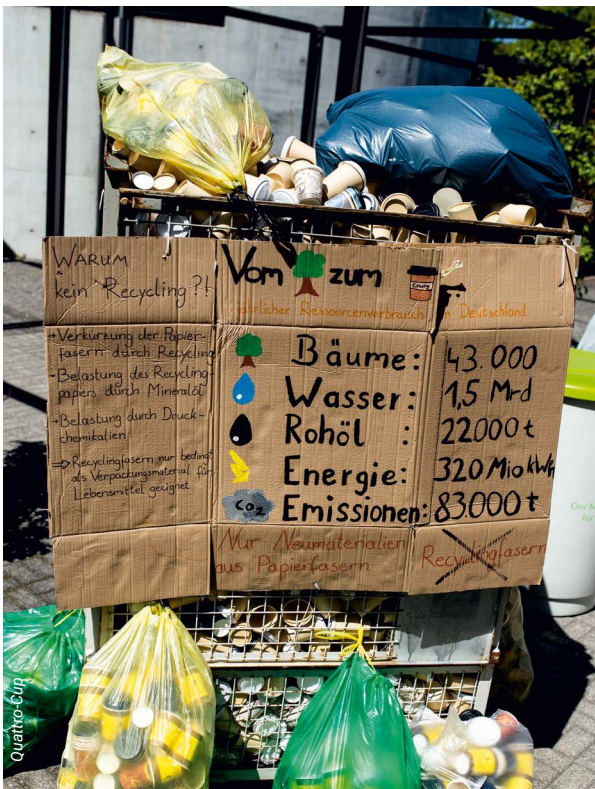 WARUM
kein Recycling ?!
→ Verkürzung der Papier-
fasern durch Recycling
→ Belastung des Recycling-
papiers durch Mineralöl
→ Belastung durch Druck-
chemikalien
⇒ Recyclingfasern nur bedingt
als Verpackungsmaterial für
Lebensmittel geeignet
Vom zum
jährlicher Ressourcenverbrauch in Deutschland
Bäume: 43.000
Wasser: 1,5 Mrd
Rohöl : 22.000 t
Energie: 320 Mio kWh
CO2 Emissionen: 83.000 t
Nur Neumaterialien
aus Papierfasern
Recyclingfasern
Der
für
Quattro-Cup